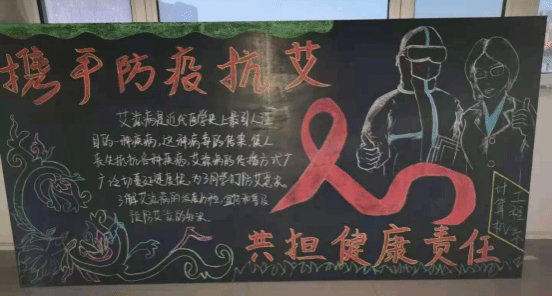 携手防疫抗艾
艾滋病是近代医学史上最引人注
目的一种疾病,这种病毒的传染,使人
丧失抵抗各种疾病,艾滋病的传播方式广
广泛切蔓延速度快,为了同学们防艾意识
了解艾滋病的
防艾知识
共担健康责任
计算机
工程